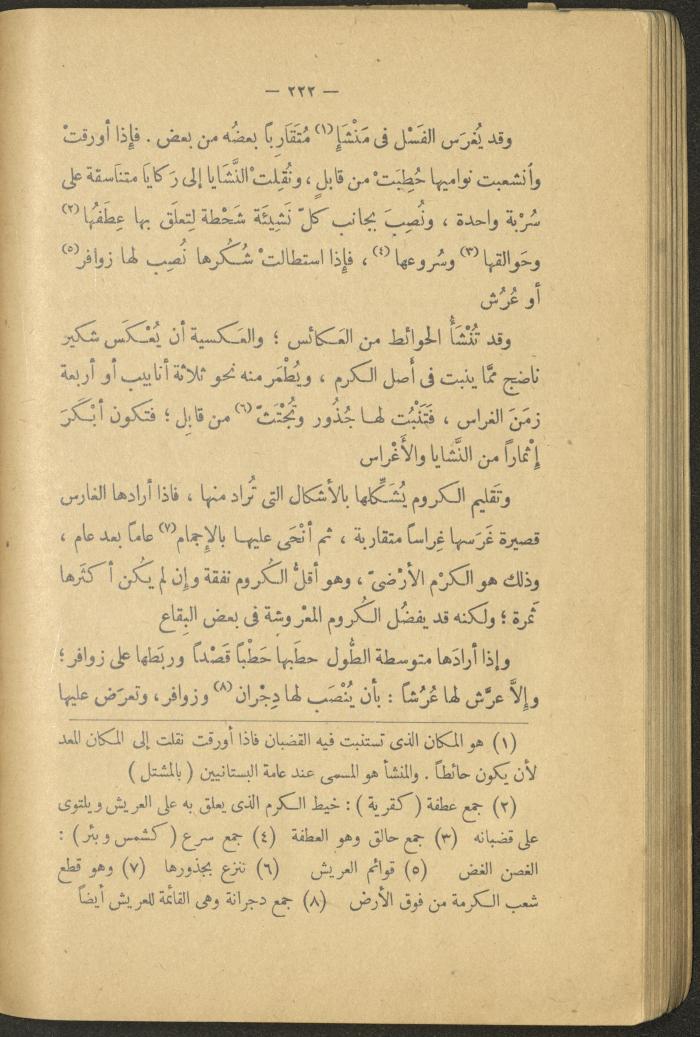 — ٢٢٢ —
وقد يُغرَس الفَسْل فى مَنْشَإٍ (١) مُتَقَارِباً بعضُه من بعض . فإِذا أورقتْ
وأنشعبت نواميها حُطِبَتْ من قابلٍ ، ونُقِلتْ النَّشَايا إلى رَكايَا متناسقة على
سُرْبة واحدة ، ونُصِبَ بجانب كلّ نَشِيئَة شَحْطة لِتعلَق بها عِطَفُها (٢)
وحَوالقها (٣) وسُروعها (٤) ، فإِذا استطالتْ شُكُرها نُصِب لها زوافر (٥)
أو عُرُش
وقد تُنْشَأُ الحوائط من العَكائس ؛ والعَكسية أن يُعْكَس شكير
ناضج ممَّا ينبت فى أَصل الكرم ، ويُطْمَر منه نحو ثلاثة أنابيب أو أربعة
زمَنَ الغراس ، فَتَنْبُت لها جُذُور وتُجْتَثّ (٦) من قابِل ؛ فتكون أبْكَرَ
إِثماراً من النَّشايا والأَغْراس
وتَقليم الكروم يُشَكِّلها بالأشكال التى تُراد منها ، فاذا أرادها الغارس
قصيرة غَرَسها غِراساً متقاربة ، ثم أَنْحَى عليها بالإِجمام (٧) عاماً بعد عام ،
وذلك هو الكرْم الأرْضىّ ، وهو أقلُّ الكُروم نفقة وإن لم يكُن أكثَرها
ثَمرة ؛ ولكنه قد يفضُل الكُروم المعْروشة فى بعض البِقاع
وإذا أرادَها متوسطة الطُّول حطَبها حَطْباً قَصْداً وربَطها على زوافر ؛
وإِلاَّ عرَّش لها عُرُشاً : بأن يُنْصَب لها دِجْران (٨) وزوافر ، وتعرَض عليها
(١) هو المكان الذى تستنبت فيه القضبان فاذا أورقت نقلت إلى المكان المعد
لأن يكون حائطاً . والمنشأ هو المسمى عند عامة البستانيين ( بالمشتل )
(٢) جمع عطفة ( كقرية ) : خيط الكرم الذى يعلق به على العريش ويلتوى
على قضبانه (٣) جمع حالق وهو العطفة (٤) جمع سرع ( كشمس وبئر ) :
الغصن الغض (٥) قوائم العريش (٦) تنزع بجذورها (٧) وهو قطع
شعب الكرمة من فوق الأرض (٨) جمع دجرانة وهى القائمة للعريش أيضاً